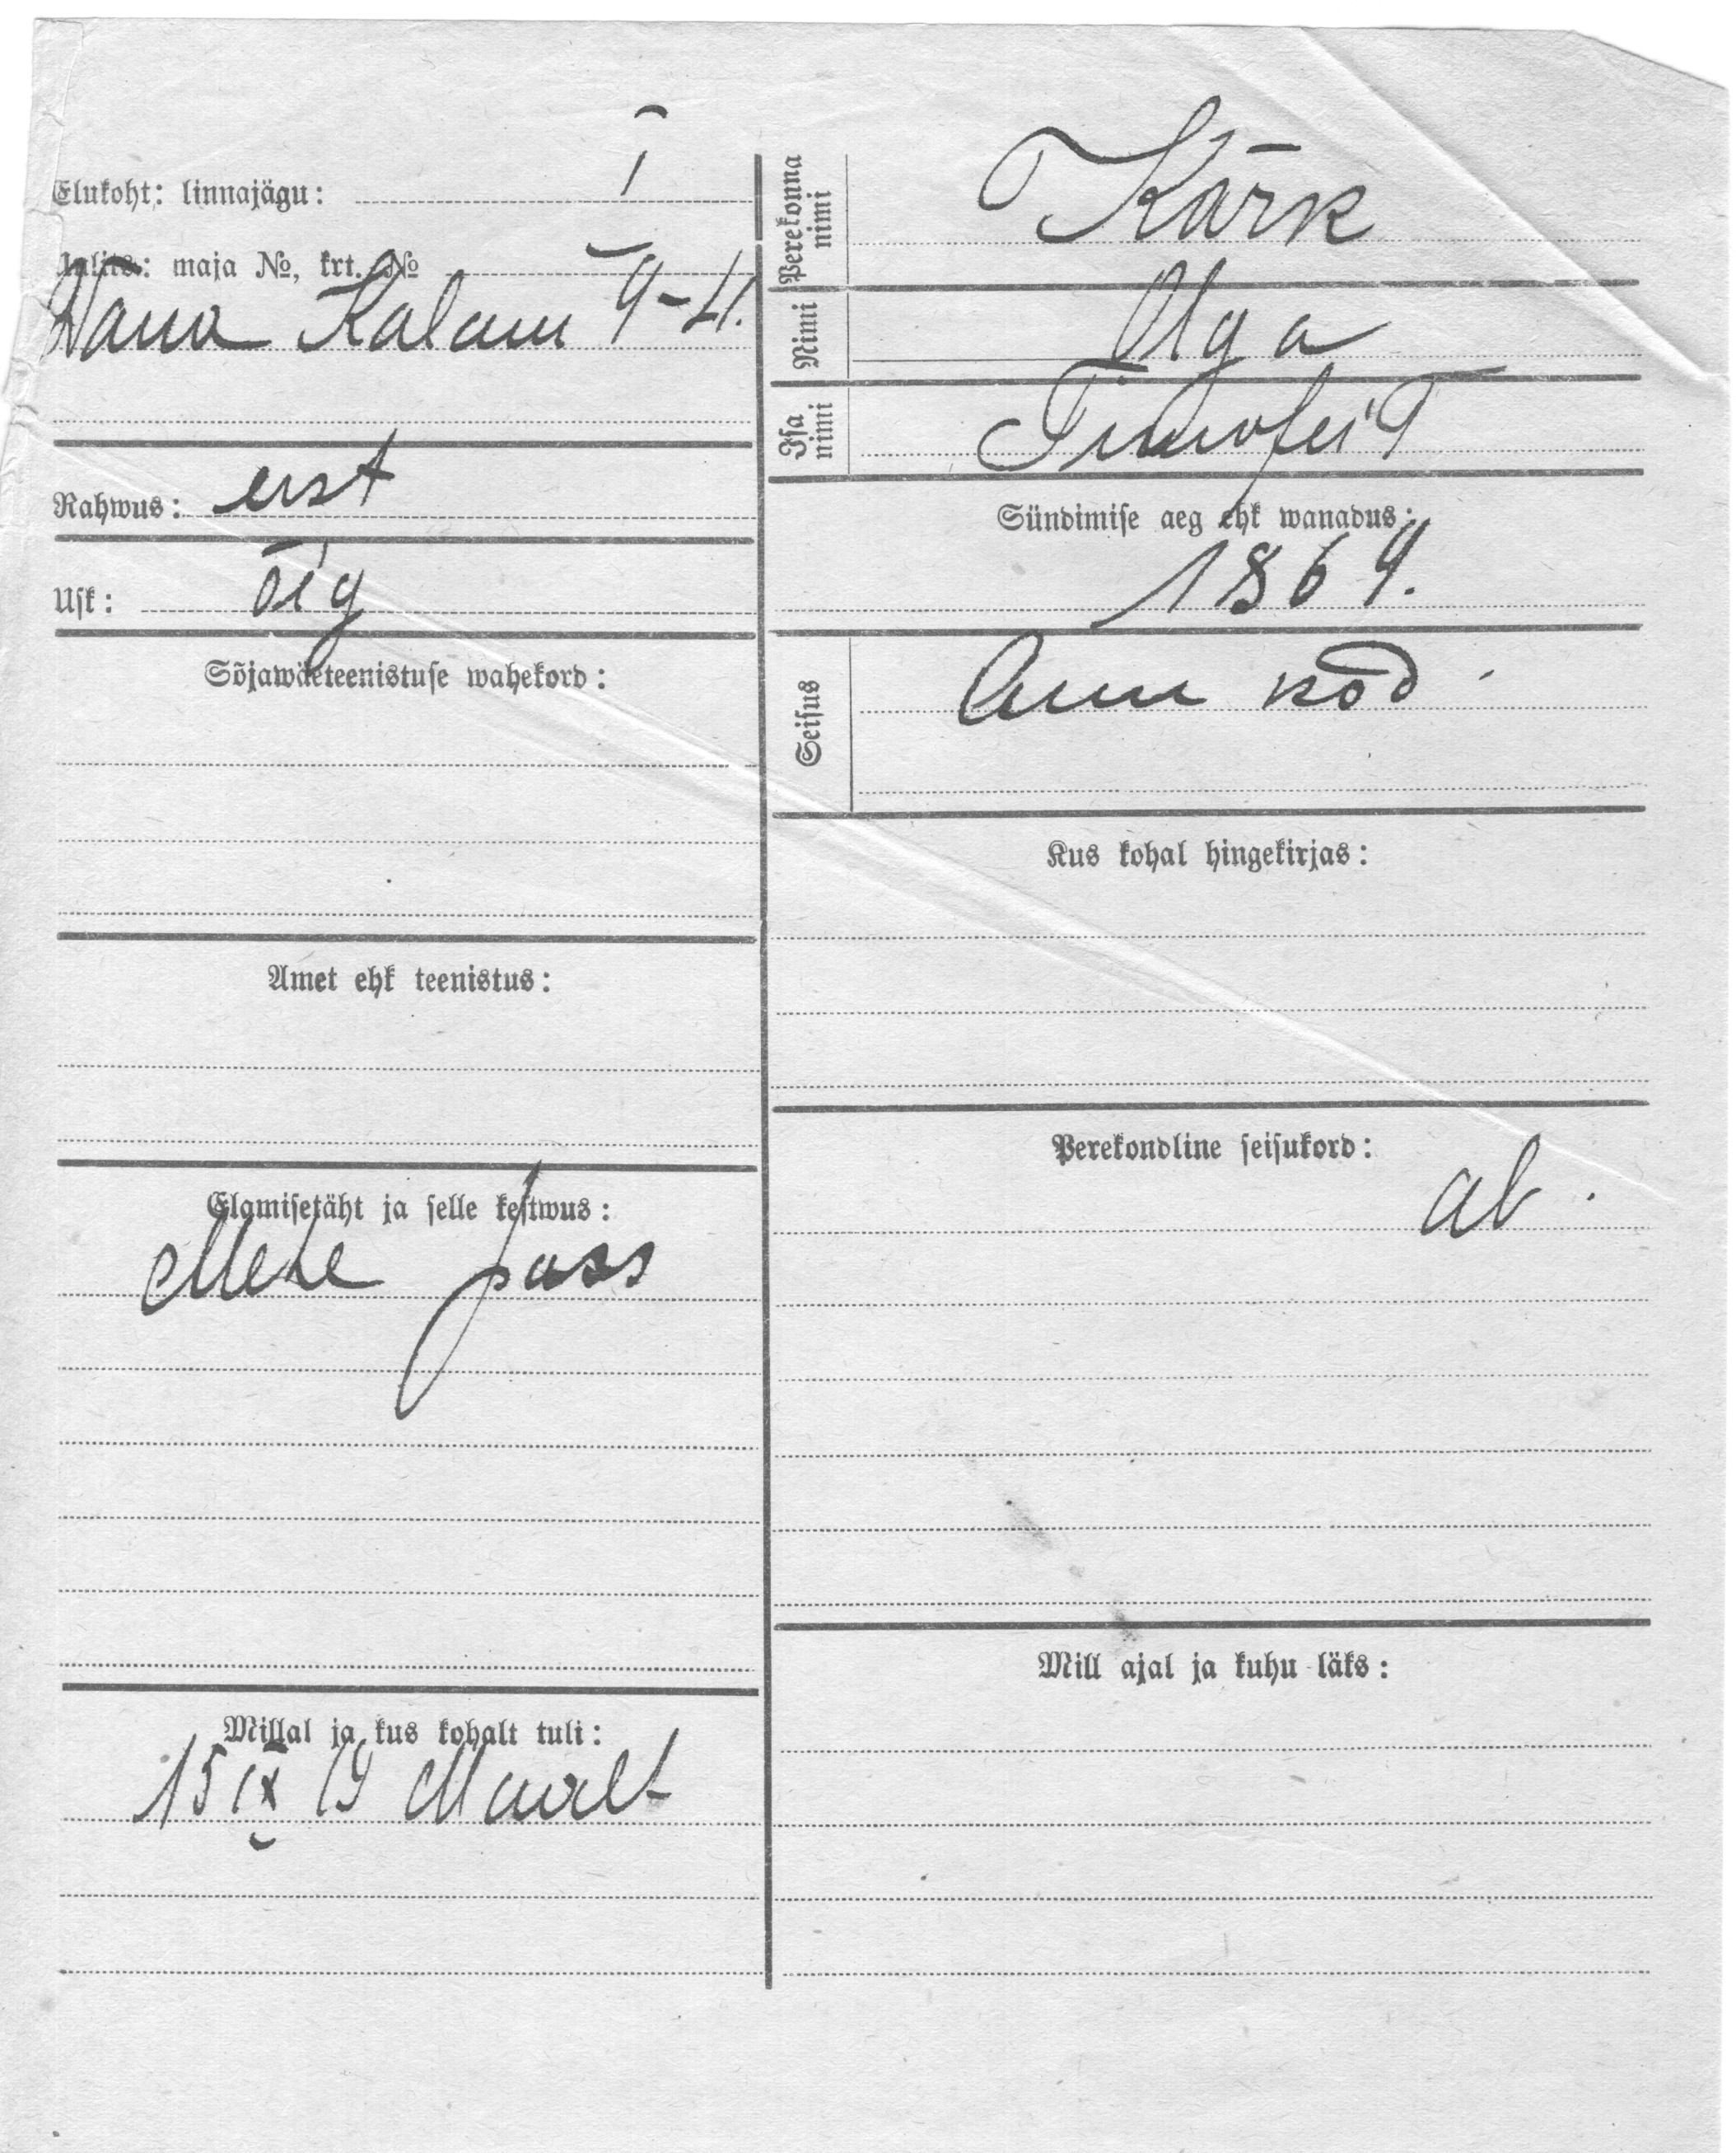 Elukoht: linnajägu: I
uulits: maja №, krt. №
Wana Kalam 9-4.
Rahwus: eest
Usk: õig
Sõjawäeteenistuse wahekord:
Amet ehk teenistus:
Elamisetäht ja selle kestwus:
Mehe pass
Millal ja kus kohalt tuli:
15 IX 19 Maalt
Perekonna nimi Kärk
Nimi Olga
Isa nimi Timofei T
Sündimise aeg ehk wanadus:
1869.
Seisus Am kod
Kus kohal hingekirjas:
Perekondline seisukord:
ab.
Mill ajal ja kuhu läks: